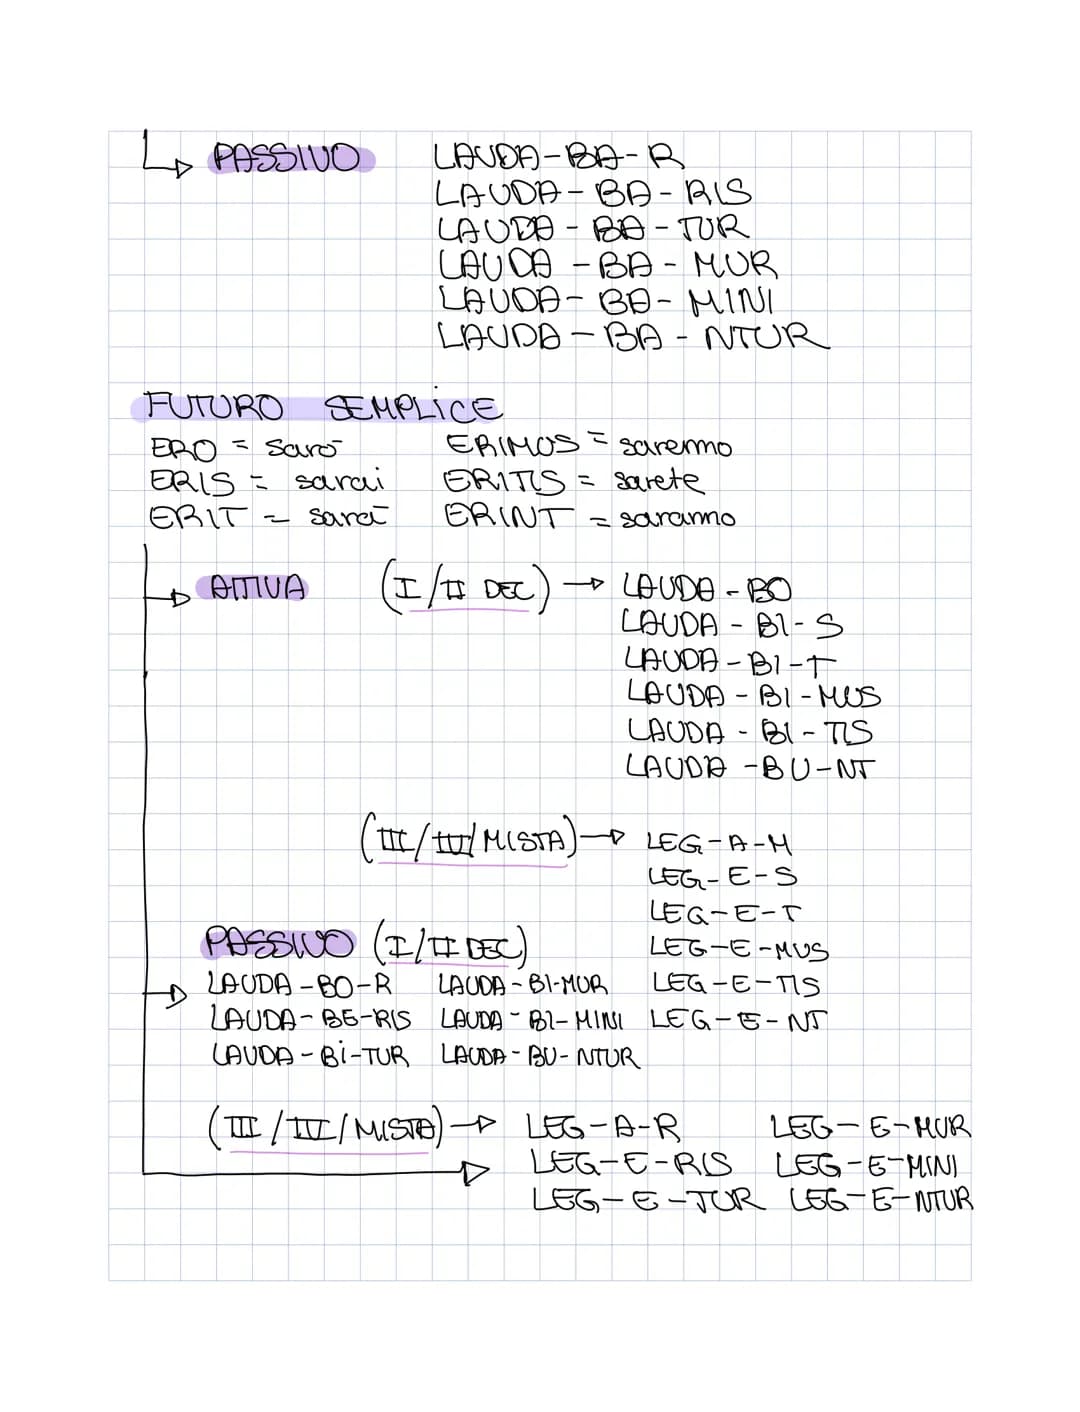 PASSIVO LAUDA-BA-R
LAUDA-BA-RIS
LAUDA-BA-TUR
LAUDA-BA-MUR
LAUDA-BA-MINI
LAUDA-BA-NTUR
FUTURO SEMPLICE
ERO = sarò ERIMOS = saremo
ERIS = sarai ERITIS = sarete
ERIT = sarà ERINT = saranno
ATTIVA (I/II DEC) → LAUDA-BO
LAUDA-BI-S
LAUDA-BI-T
LAUDA-BI-MUS
LAUDA-BI-TIS
LAUDA-BU-NT
(III/IIII/MISTA) → LEG-A-M
LEG-E-S
LEG-E-T
PASSIVO (I/II DEC) LEG-E-MUS
LAUDA-BO-R LAUDA-BI-MUR LEG-E-TIS
LAUDA-BE-RIS LAUDA-BI-MINI LEG-E-NT
LAUDA-Bi-TUR LAUDA-BU-NTUR
(III/IV/MISTA) → LEG-A-R LEG-E-MUR
LEG-E-RIS LEG-E-MINI
LEG-E-TUR LEG-E-NTUR